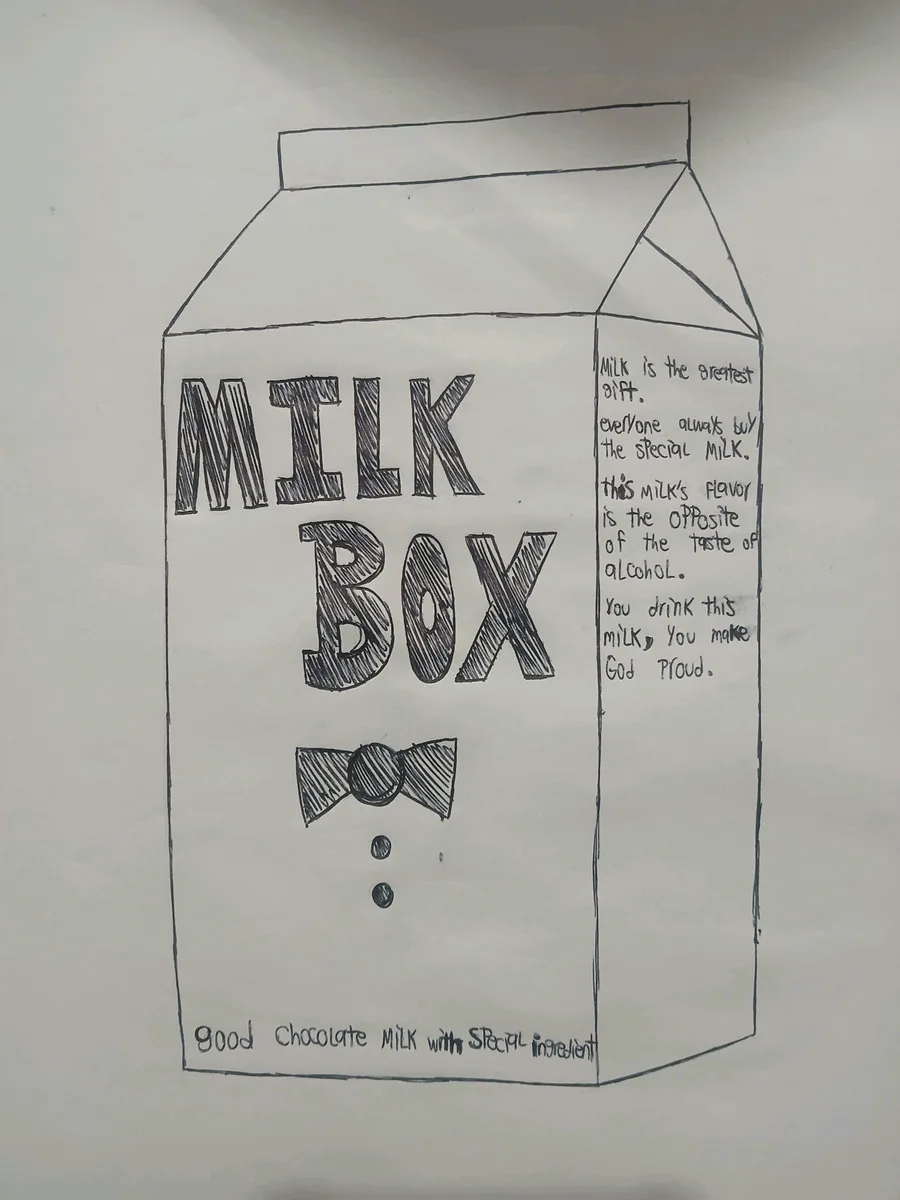 MILK
BOX
good Chocolate MiLK with SPeciaL ingredient
MiLK is the greatest
gift.
everyone always buy
the sPeciaL MiLK.
this MiLK's FLavor
is the oPPosite
of the taste of
aLcohoL.
You drink this
miLK, You make
God Proud.